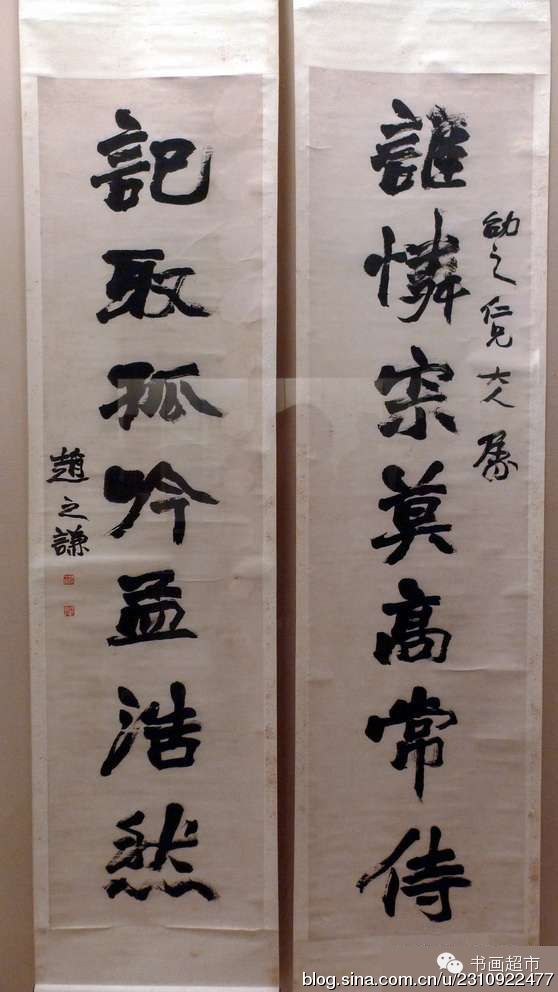 幼之仁兄大人属
誰憐寂莫高常侍
記取孤吟孟浩然
趙之謙
书画超市
blog.sina.com.cn/u/2310922477